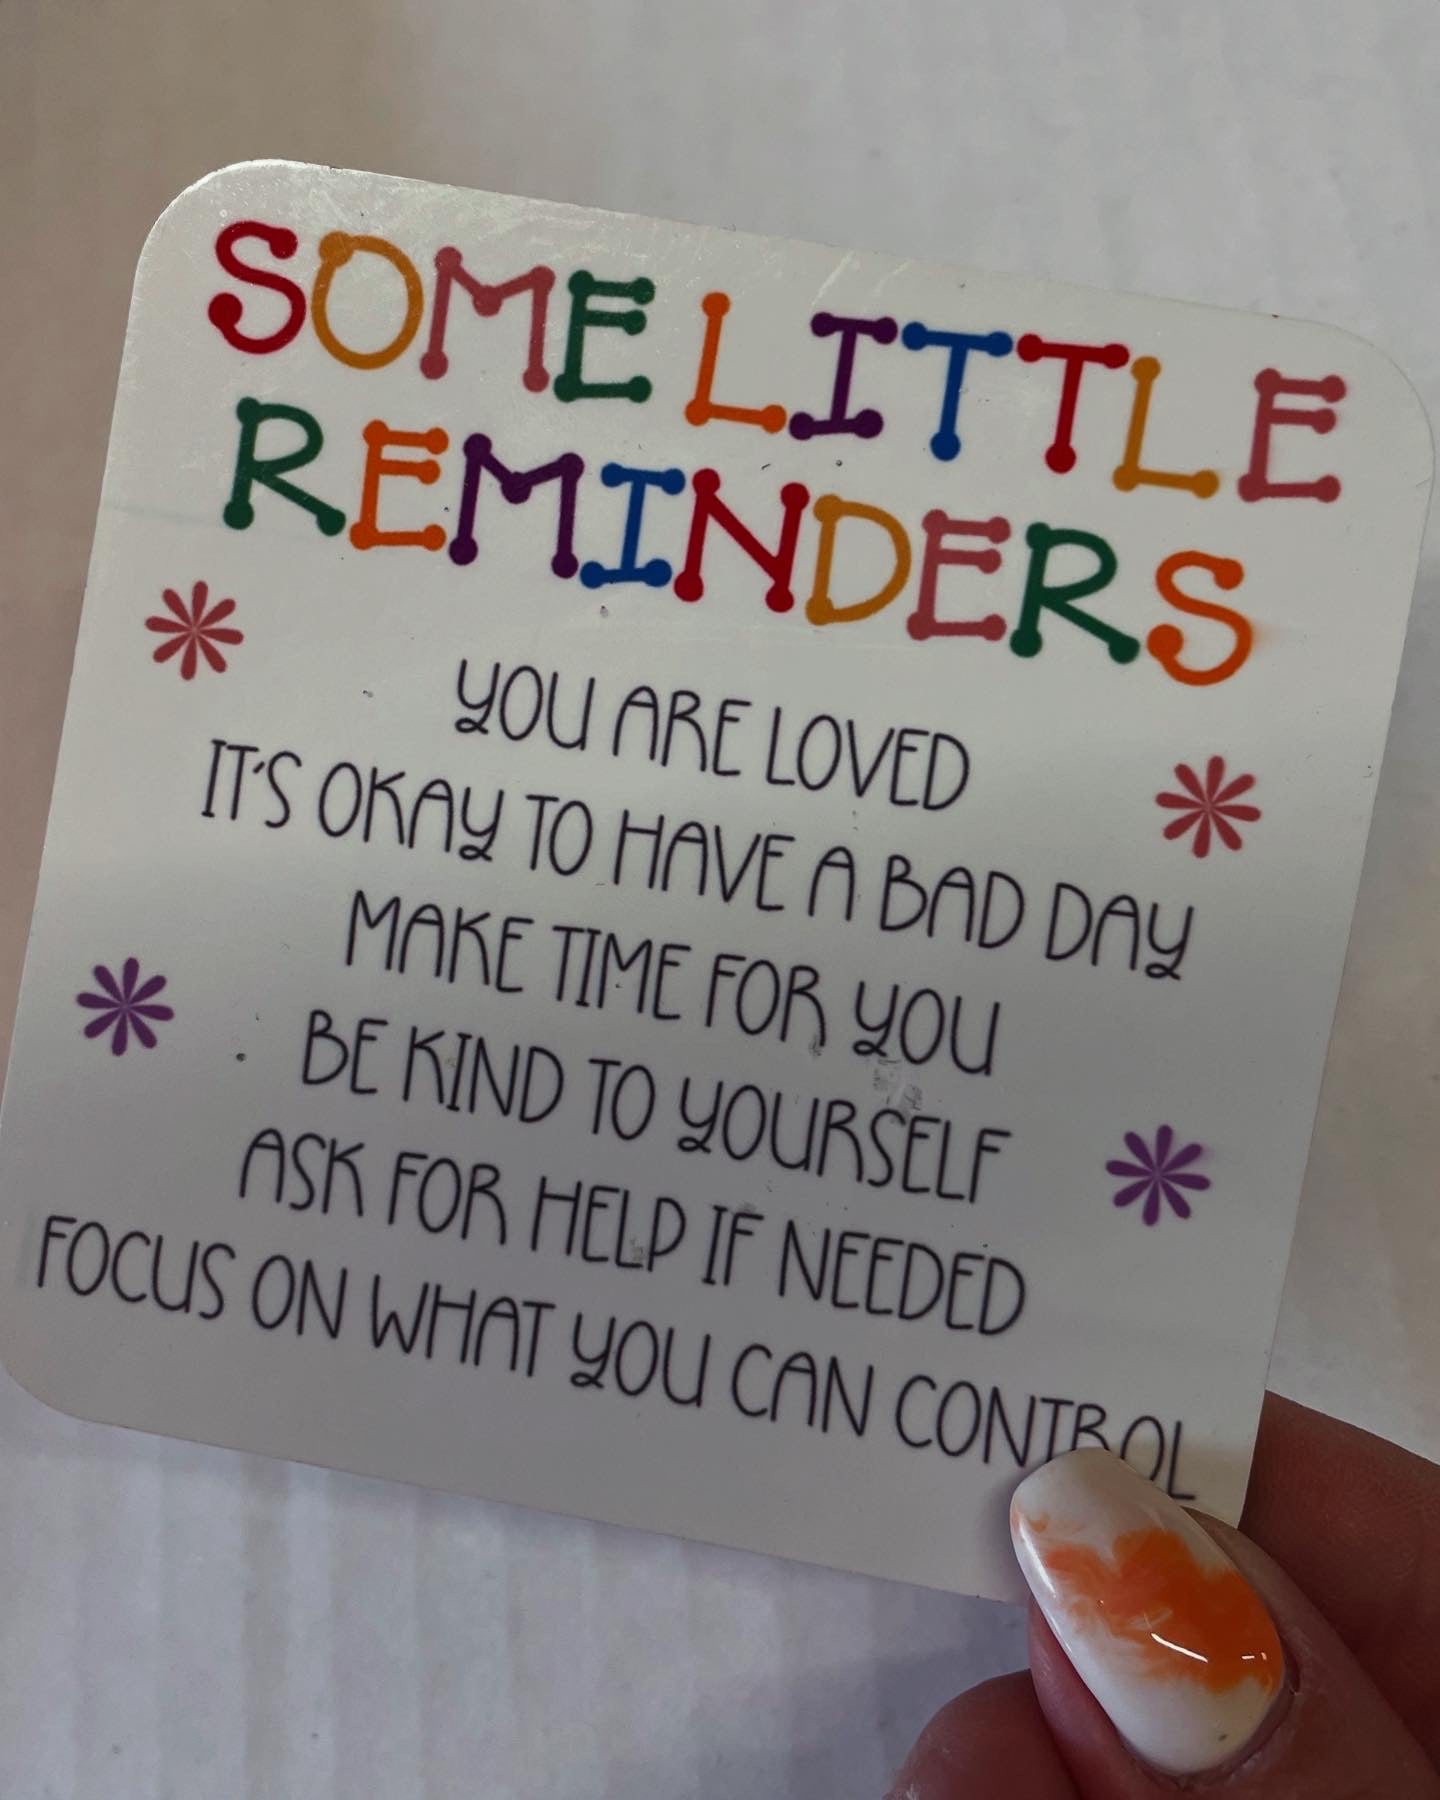 SOME LITTLE
REMINDERS
YOU ARE LOVED
IT'S OKAY TO HAVE A BAD DAY
MAKE TIME FOR YOU
BE KIND TO YOURSELF
ASK FOR HELP IF NEEDED
FOCUS ON WHAT YOU CAN CONTROL